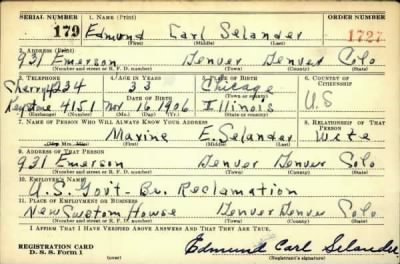 SERIAL NUMBER 1. NAME (Print) ORDER NUMBER
179 Edmund Carl Selander 1727
(First) (Middle) (Last)
2. ADDRESS (Print)
931 Emerson Denver Denver Colo
(Number and street or R. F. D. number) (Town) (County) (State)
3. TELEPHONE 4. AGE IN YEARS 5. PLACE OF BIRTH 6. COUNTRY OF CITIZENSHIP
Cherry 234 33 Chicago
DATE OF BIRTH (Town or county)
Keystone 4151 Nov. 16 1906 Illinois U.S
(Exchange) (Number) (Mo.) (Day) (Yr.) (State or country)
7. NAME OF PERSON WHO WILL ALWAYS KNOW YOUR ADDRESS 8. RELATIONSHIP OF THAT PERSON
E. Selander Wife
(First) (Middle) (Last)
9. ADDRESS OF THAT PERSON
931 Emerson Denver Denver Colo
(Number and street or R. F. D. number) (Town) (County) (State)
10. EMPLOYER'S NAME
U.S. Govt - Bu. Reclamation
11. PLACE OF EMPLOYMENT OR BUSINESS
New Custom House Denver Denver Colo.
(Number and street or R. F. D. number) (Town) (County) (State)
I AFFIRM THAT I HAVE VERIFIED ABOVE ANSWERS AND THAT THEY ARE TRUE.
REGISTRATION CARD Edmund Carl Selander
D. S. S. Form 1 (over) (Registrant's signature)